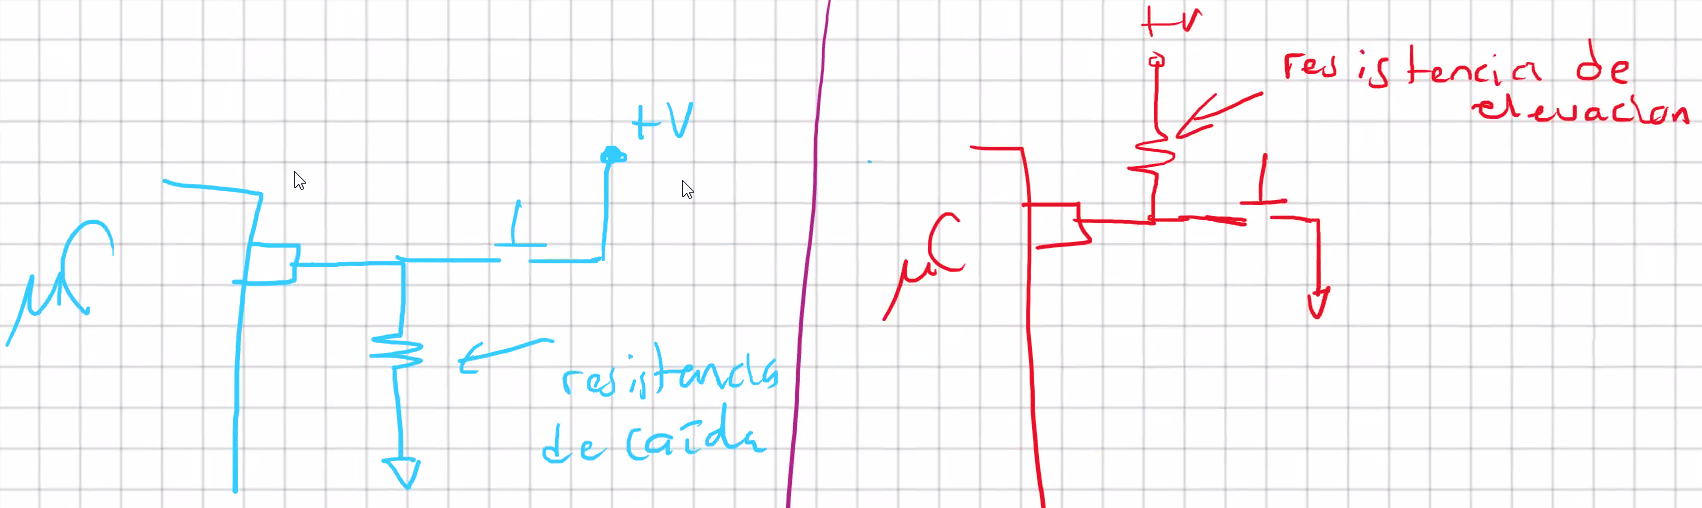 +V
μC
resistencia
de caída
+V
resistencia de
elevacion
μC